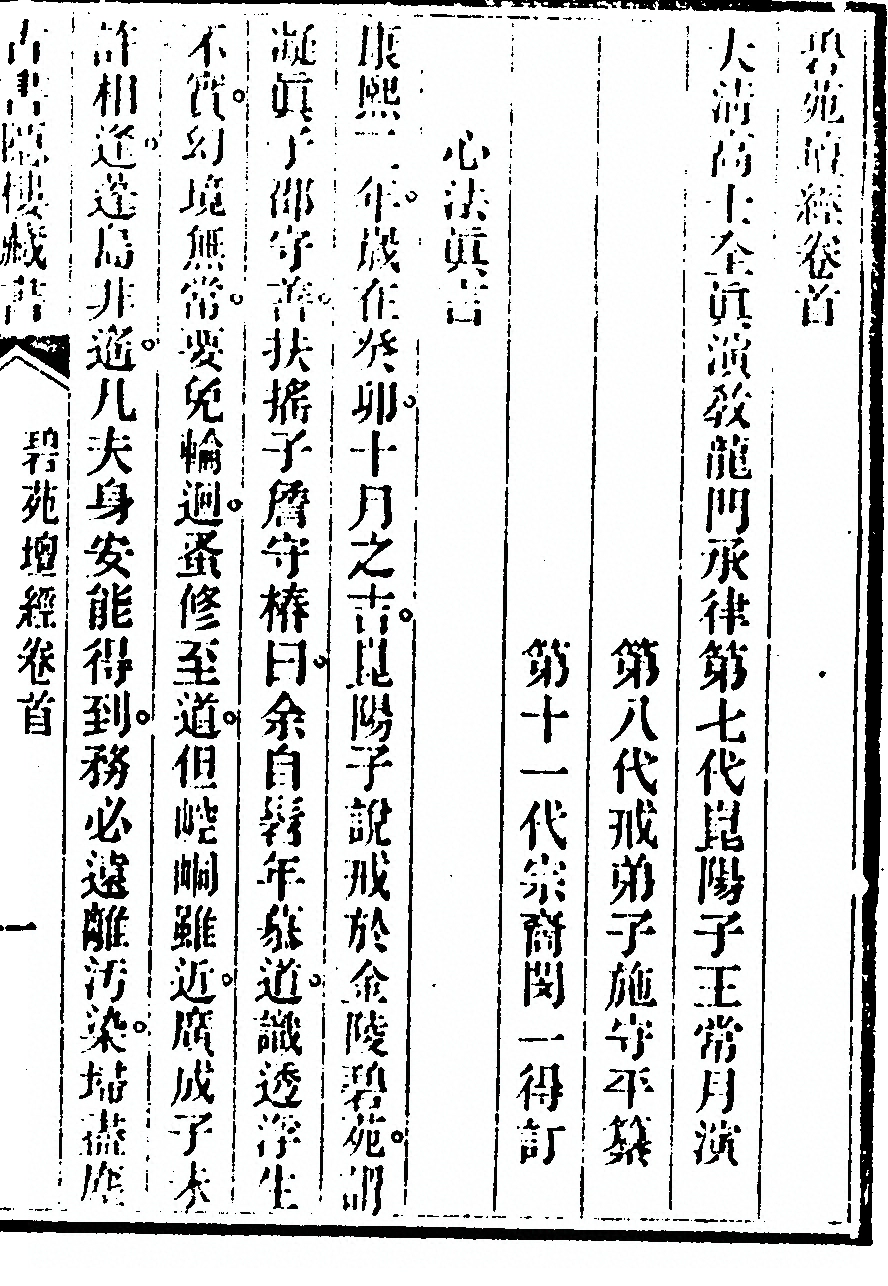 碧苑壇經卷首
大清高士全眞演敎龍門承律第七代崑陽子王常月演
第八代戒弟子施守平纂
第十一代宗裔閔一得訂
心法眞言
康熙二年。歲在癸卯。十月之吉。崑陽子說戒於金陵碧苑。謂
凝眞子邵守善。扶搖子詹守椿曰。余自髫年慕道。識透浮生
不實。幻境無常。要免輪迴。蚤修至道。但崆峒雖近。廣成子未
許相逢。蓬島非遙。凡夫身安能得到。務必遠離汚染。掃盡塵
古書隱樓藏書
碧苑壇經卷首
一